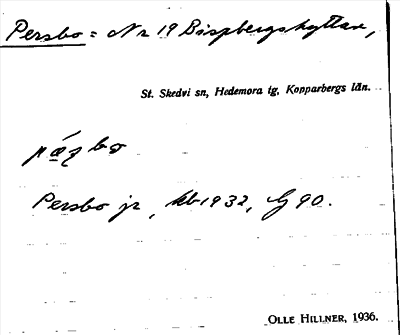 Persbo = Nr 19 Bispbergshyttan,
St. Skedvi sn, Hedemora tg, Kopparbergs län.
Persbo jr, kb 1932, G 90.
OLLE HILLNER, 1936.